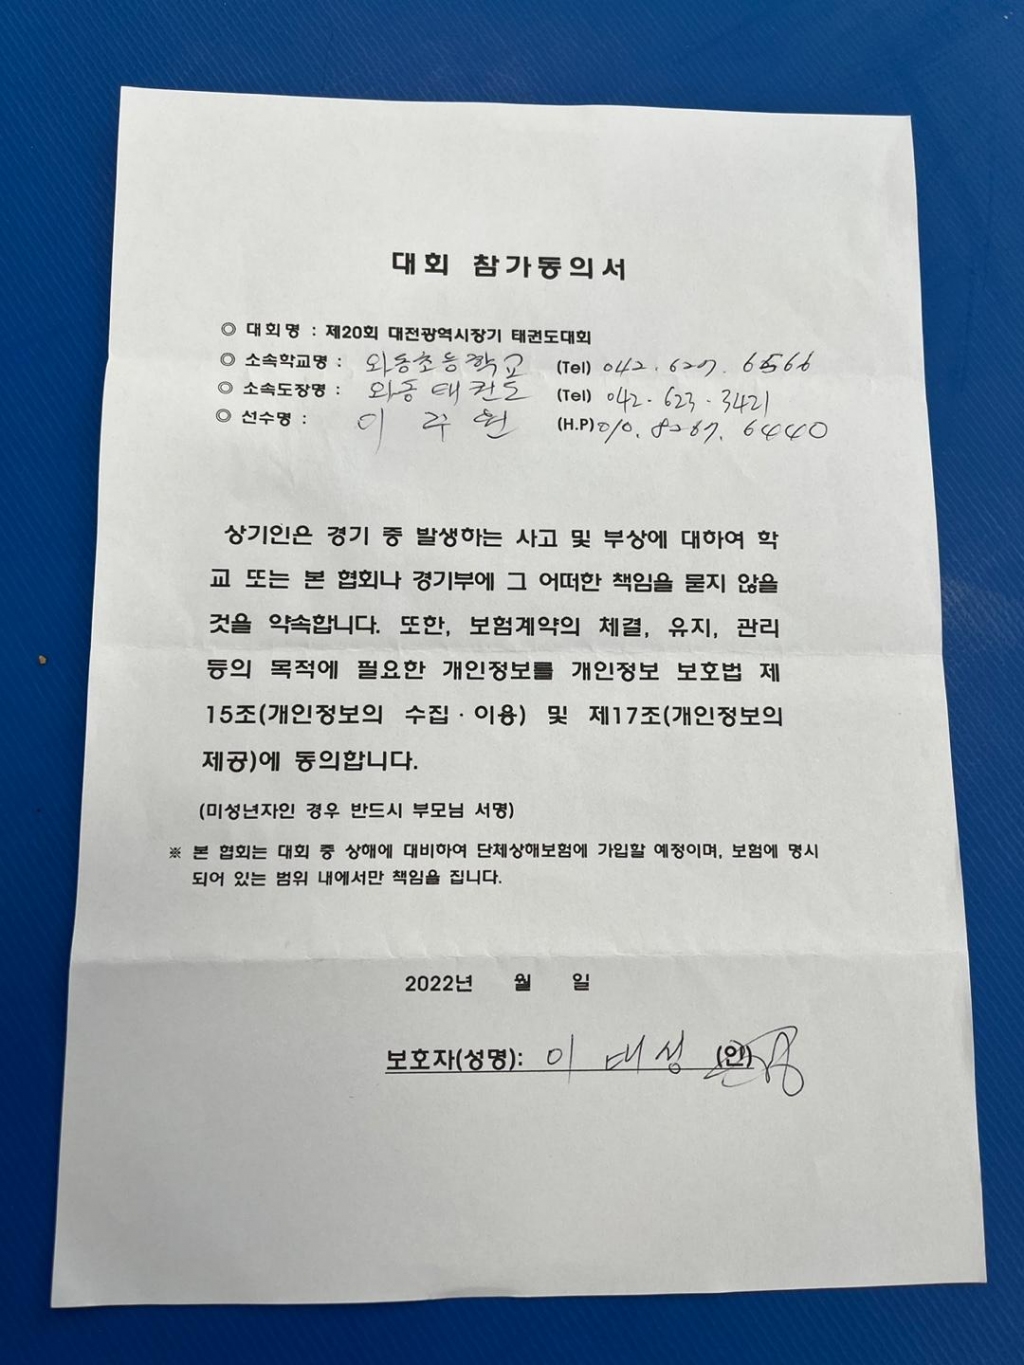 대회 참가동의서
◎ 대회명 : 제20회 대전광역시장기 태권도대회
◎ 소속학교명 : 와동초등학교 (Tel) 042. 627. 6566
◎ 소속도장명 : 와동태권도 (Tel) 042. 623. 3421
◎ 선수명 : 이 주 원 (H.P) 010. 8267. 6440
상기인은 경기 중 발생하는 사고 및 부상에 대하여 학
교 또는 본 협회나 경기부에 그 어떠한 책임을 묻지 않을
것을 약속합니다. 또한, 보험계약의 체결, 유지, 관리
등의 목적에 필요한 개인정보를 개인정보 보호법 제
15조(개인정보의 수집·이용) 및 제17조(개인정보의
제공)에 동의합니다.
(미성년자인 경우 반드시 부모님 서명)
※ 본 협회는 대회 중 상해에 대비하여 단체상해보험에 가입할 예정이며, 보험에 명시
되어 있는 범위 내에서만 책임을 집니다.
2022년 월 일
보호자(성명): 이 대 성 (인)